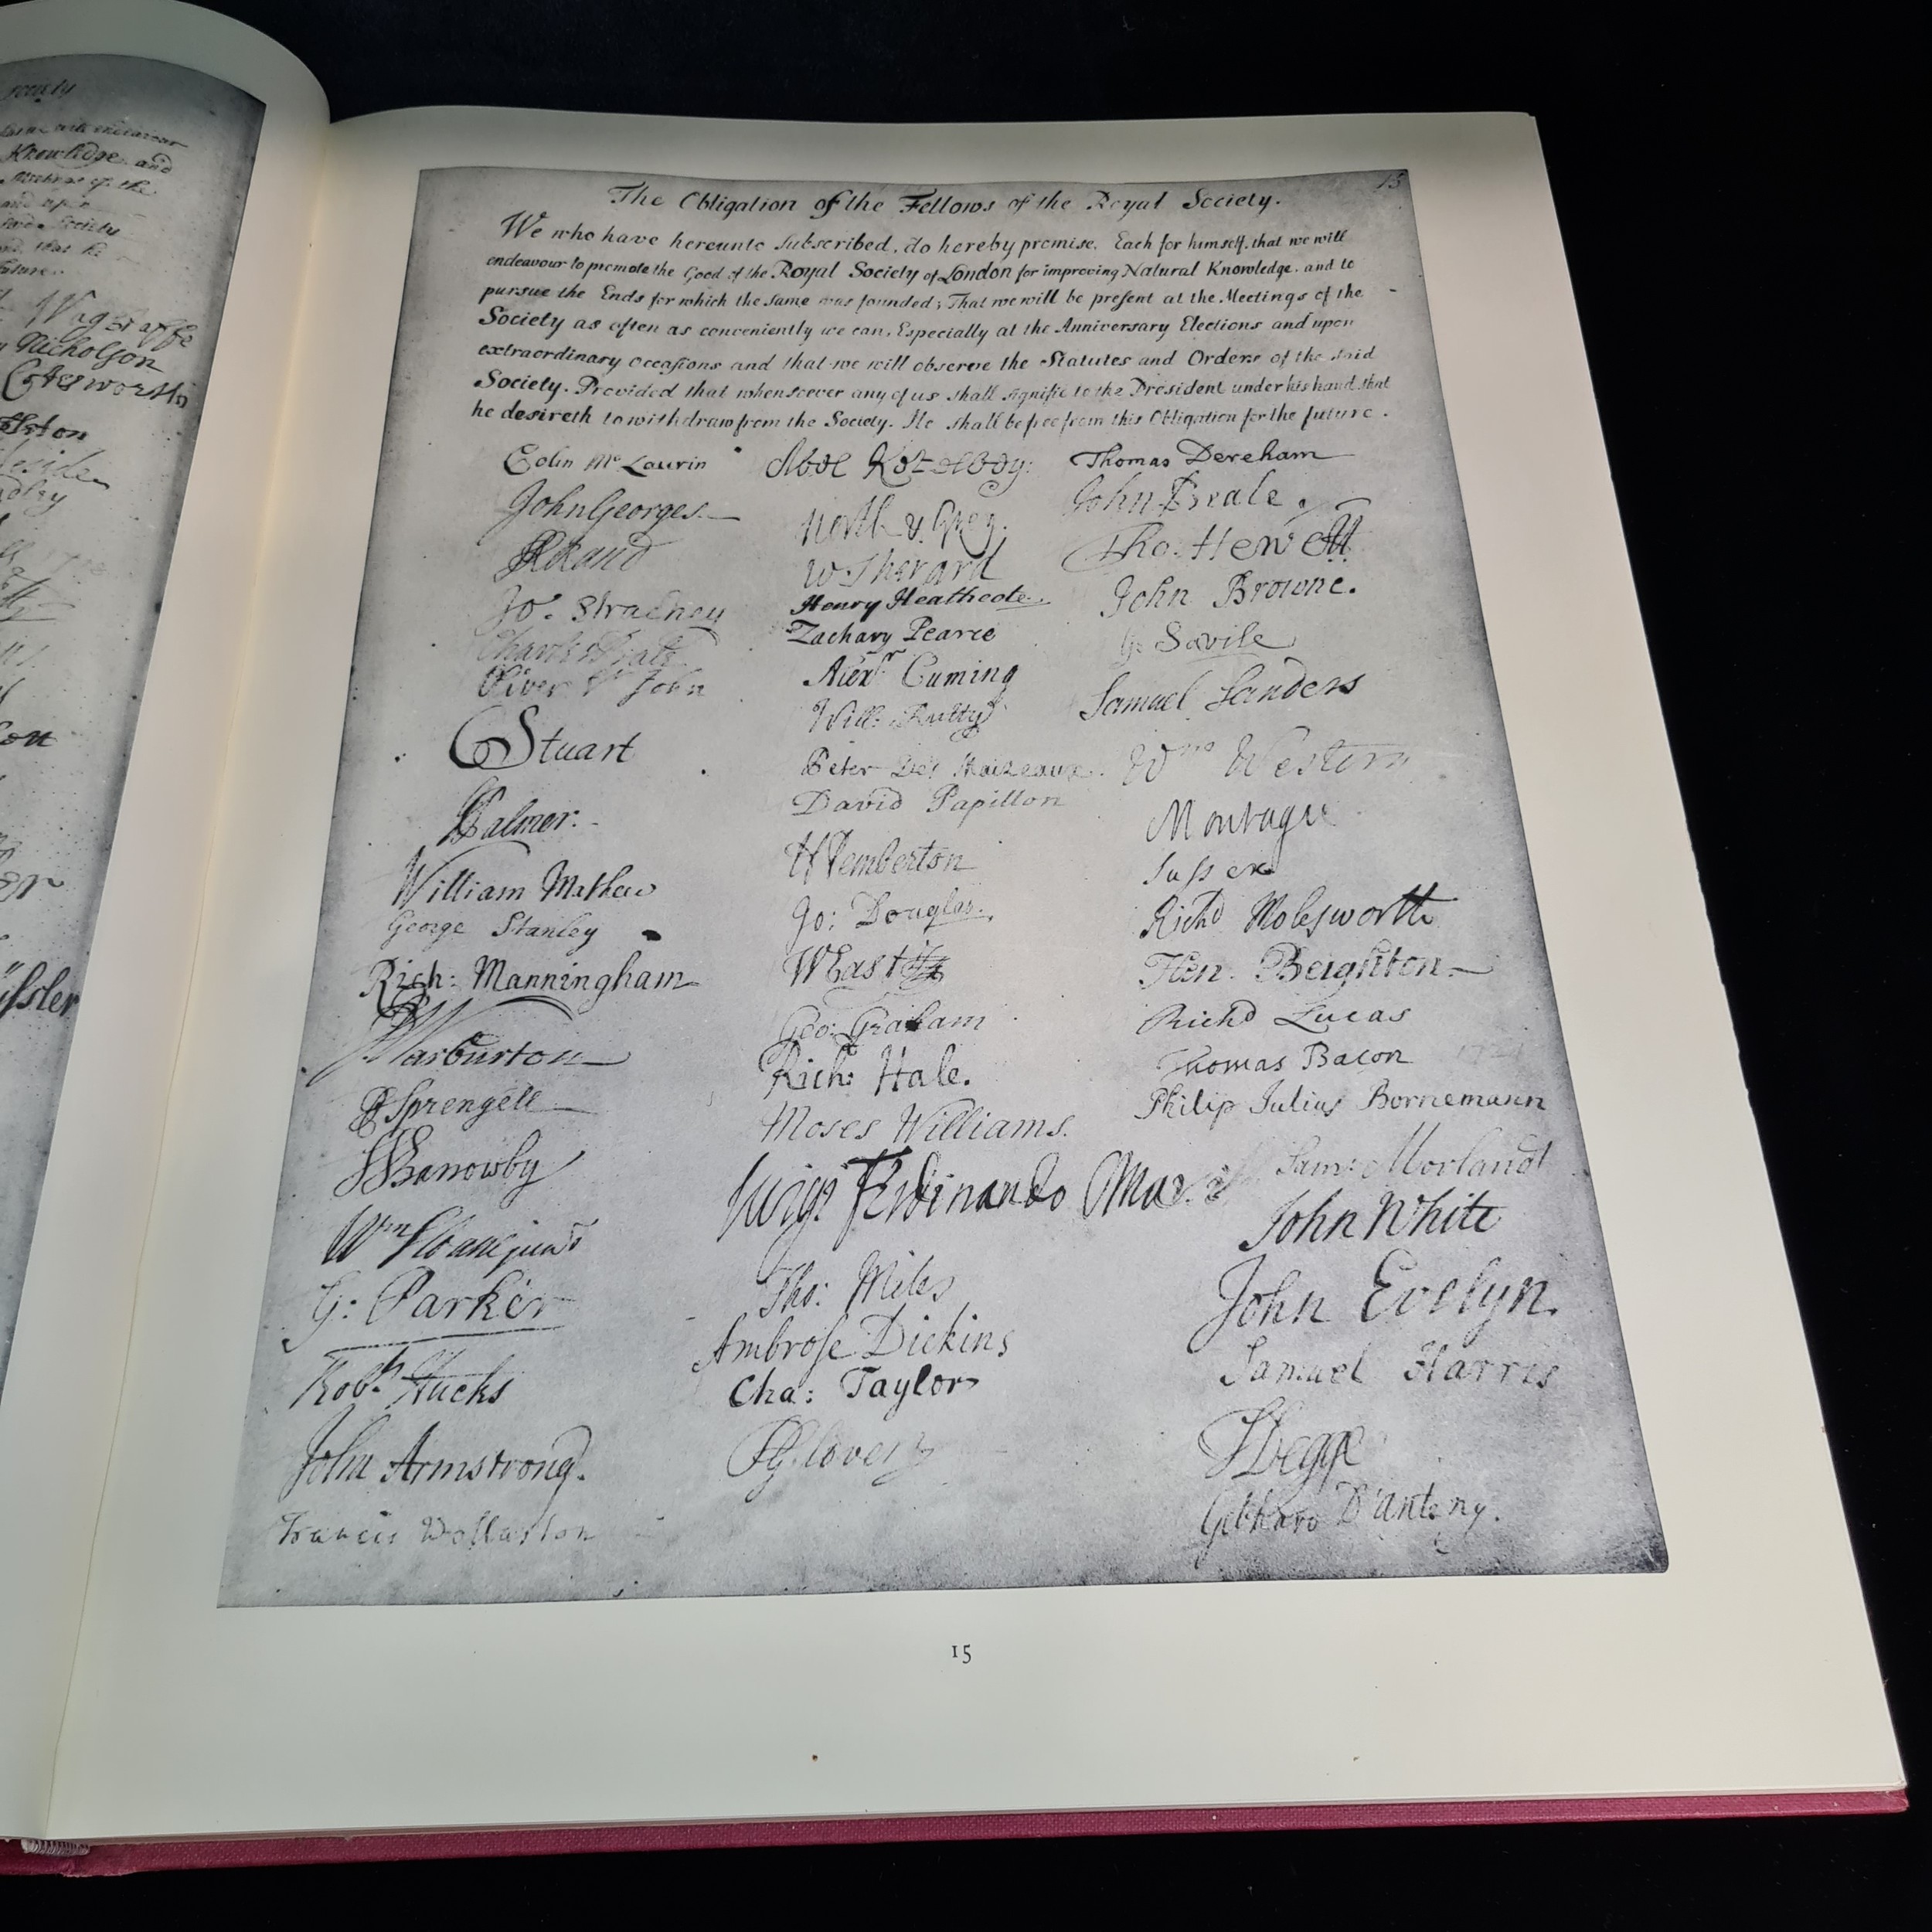 society
Knowledge and
Meetings of the
and upon
said Society
and that he
future.
Wagstaffe
Nicholson
Cotesworth
15
The Obligation of the Fellows of the Royal Society.
We who have hereunto Subscribed, do hereby promise, Each for himself, that we will
endeavour to promote the Good of the Royal Society of London for improving Natural Knowledge, and to
pursue the Ends for which the same was founded; That we will be present at the Meetings of the
Society as often as conveniently we can, Especially at the Anniversary Elections and upon
extraordinary occasions and that we will observe the Statutes and Orders of the said
Society. Provided that whensoever any of us shall signifie to the President under his hand that
he desireth to withdraw from the Society. He shall be free from this Obligation for the future.
Colin Mc Laurin
John Georges
Jo: Strachey
Oliver St John
Stuart
Palmer.
William Mathew
George Stanley
Rich: Manningham
Warburton
Sprengell
Banowby
Wm Sloane junr
G: Parker
Robt Hucks
John Armstrong.
Francis Wollaston
North & Grey.
W Sherard
Henry Heathcote
Zachary Pearce
Alexr Cuming
Will: Rutty
Peter Des Maizeaux.
David Papillon
H Pemberton
Jo: Douglas.
W East
Geo: Graham
Rich: Hale.
Moses Williams.
Luigi Ferdinando
Tho: Miles
Ambrose Dickins
Cha: Taylor
Thomas Dereham
John Beale.
Tho. Hewett
John Browne.
G: Savile
Samuel Sanders
Wm Western
Montague
Sussex
Richd Molesworth
Hen. Beighton
Richd Lucas
Thomas Bacon
Philip Julius Bornemann
Saml Morland
John White
John Evelyn.
Samuel Harris
S Degge
Gebhard D'Anteny.
15